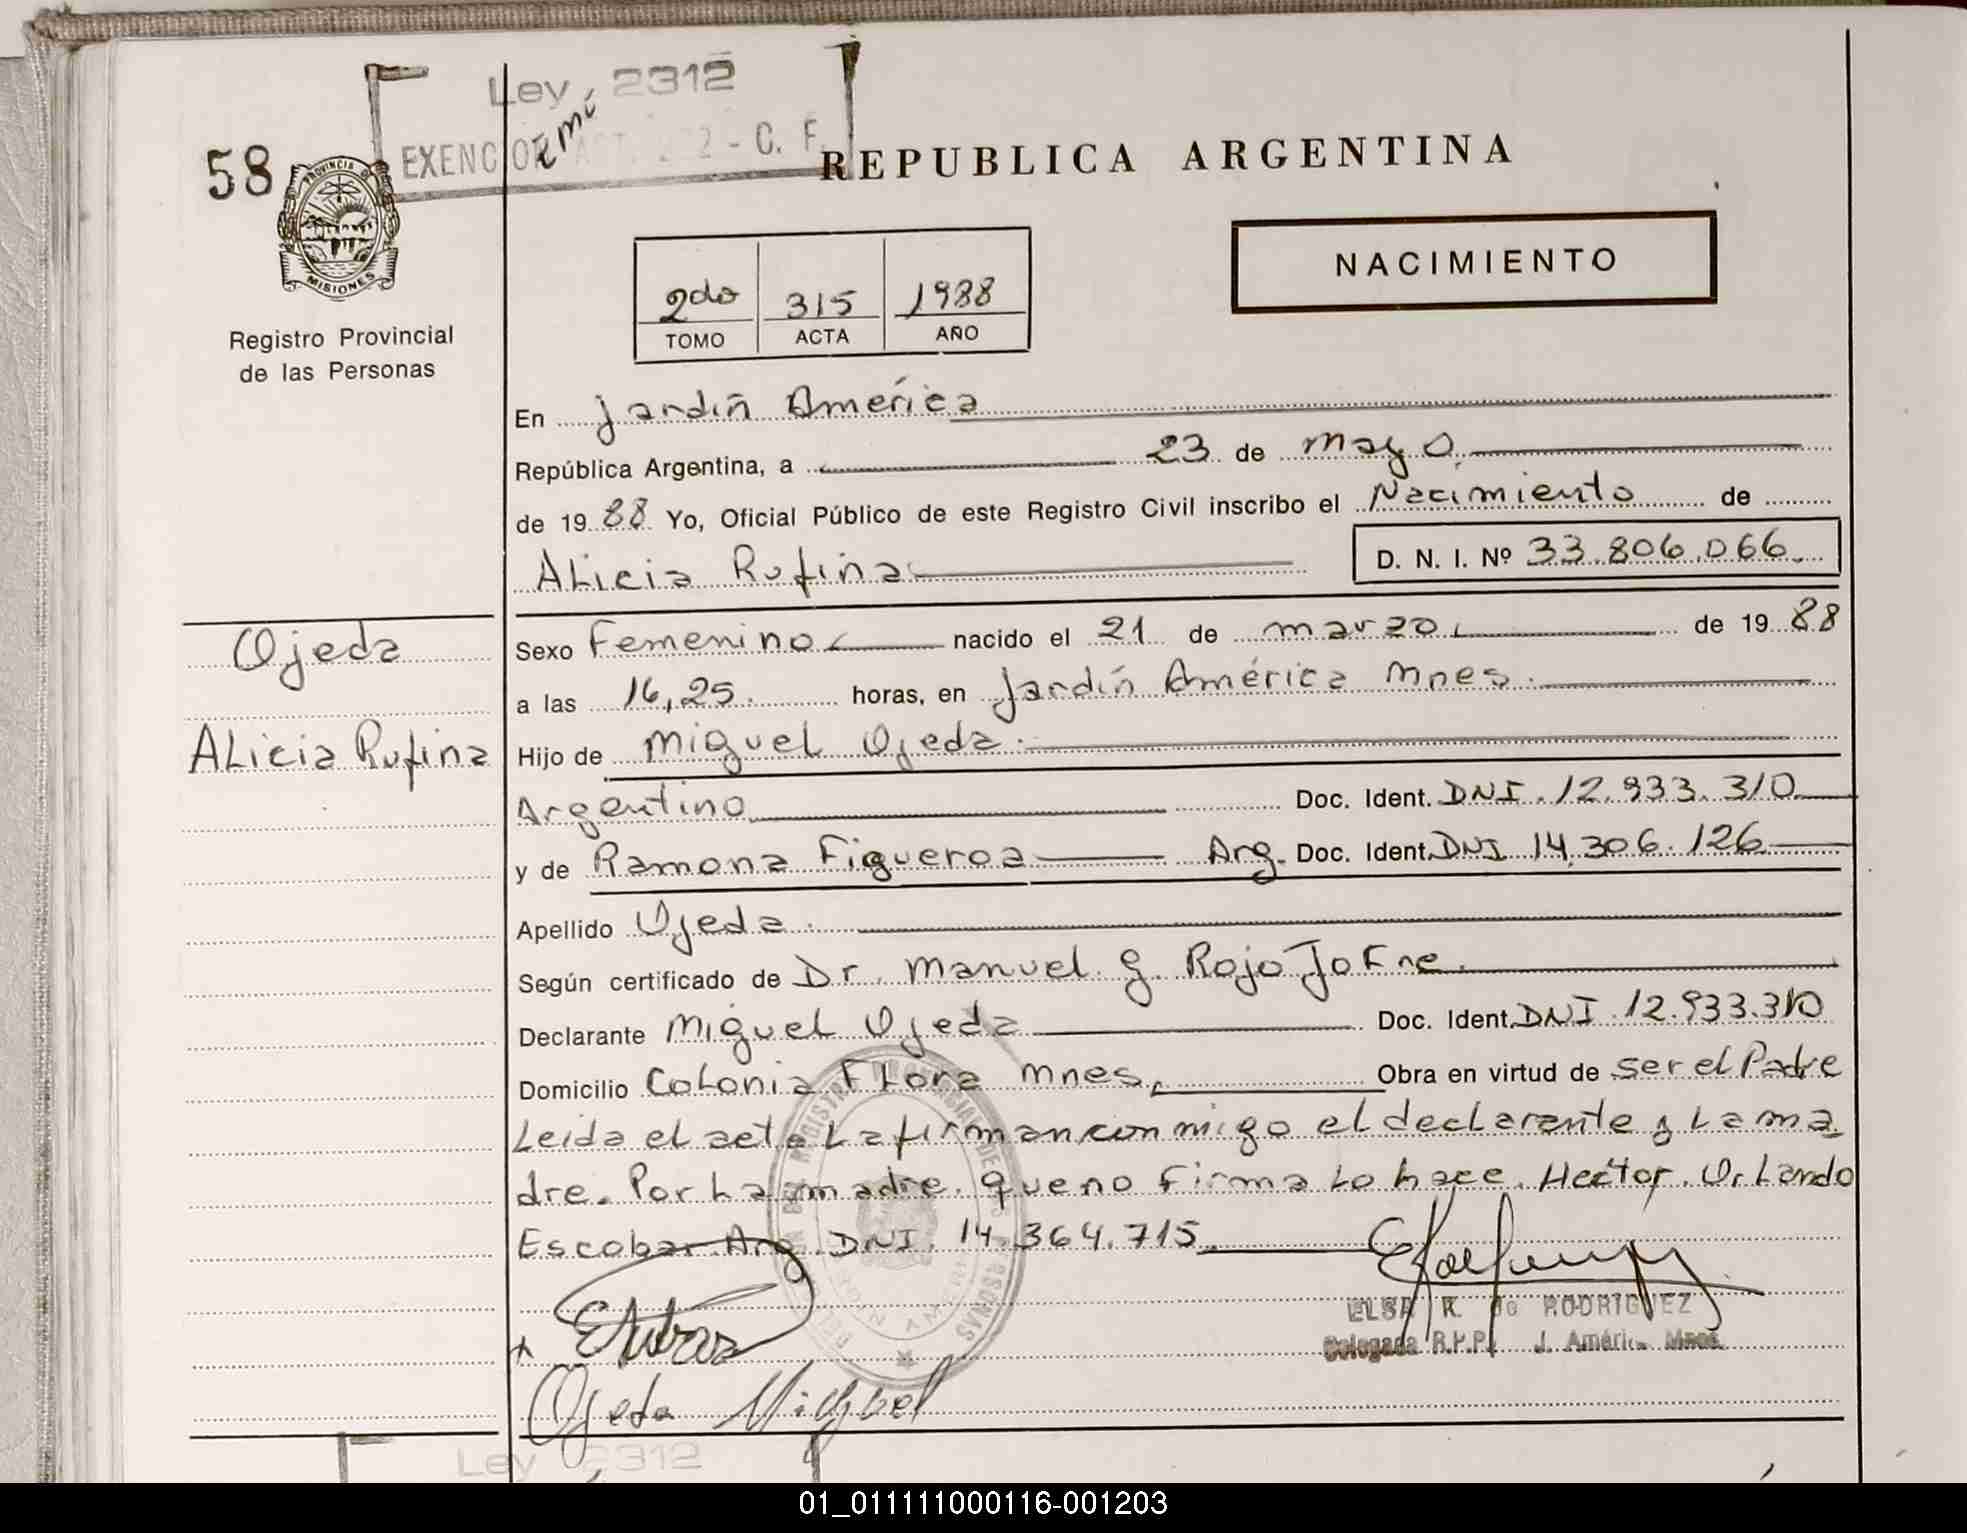 Ley 2312
EXENCION ART. 2 - C. F.
58
PROVINCIA DE
MISIONES
REPUBLICA ARGENTINA
NACIMIENTO
2do 315 1988
TOMO ACTA AÑO
Registro Provincial
de las Personas
En Jardín América
República Argentina, a 23 de mayo
de 1988 Yo, Oficial Público de este Registro Civil inscribo el Nacimiento de
Alicia Rufina D. N. I. Nº 33.806.066
Ojeda
Alicia Rufina
Sexo Femenino nacido el 21 de marzo de 1988
a las 16,25. horas, en Jardín América Mnes.
Hijo de Miguel Ojeda.
Argentino Doc. Ident. DNI. 12.933.310
y de Ramona Figueroa Arg. Doc. Ident. DNI 14.306.126
Apellido Ojeda.
Según certificado de Dr. Manuel g. Rojo Jofre.
Declarante Miguel Ojeda Doc. Ident. DNI. 12.933.310
Domicilio Colonia Flora Mnes, Obra en virtud de ser el Padre
Leida el acta la firman conmigo el declarante y la ma
dre. Por la madre que no firma lo hace. Hector. Orlando
Escobar Arg. DNI. 14.364.715.
ELSA R. de RODRIGUEZ
Delegada R.P.P. J. América Mnes.
Ojeda Miguel
Ley 2312
01_011111000116-001203